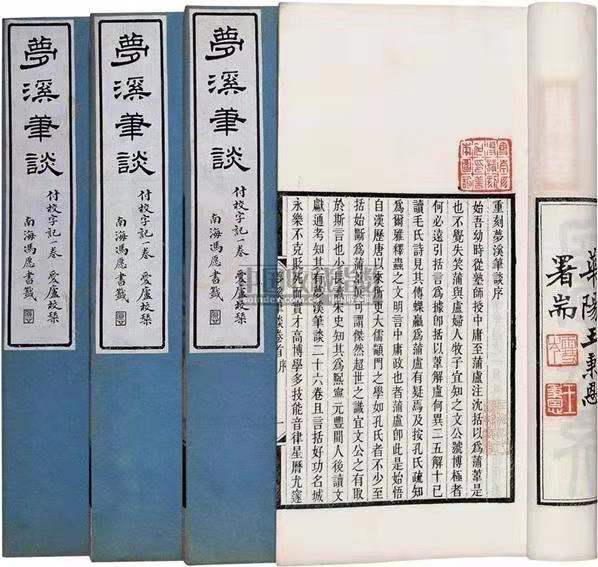 夢溪筆談
付校字記一卷 愛廬校栞
南海馮愿書籤
夢溪筆談
付校字記一卷 愛廬校栞
南海馮愿書籤
夢溪筆談
付校字記一卷 愛廬校栞
南海馮愿書籤
華陽王秉恩
署耑
王秉恩
重刻夢溪筆談序
始吾幼時從塾師授中庸至蒲盧注沈括以為蒲葦是
也不覺失笑蒲與盧婦人牧子宜知之文公號博極者
何必遠引括言為據卽括以葦解盧何異二五解十已
讀毛氏詩見其傳蜾蠃為蒲盧有疑焉及按孔氏疏知
為爾雅釋蟲之文明言中庸政也者蒲盧卽此是始悟
自漢歷唐以來所更大儒顓門之學如孔氏者不少至
括始斷為蒲葦可謂傑然超世之識宜文公之有取
於斯言也少長宋史知其為熙寧元豐間人後讀文
獻通考知其有筆談二十六卷且言括好功名城
永樂不克貶死而實才高博學多技能音律星曆尤邃